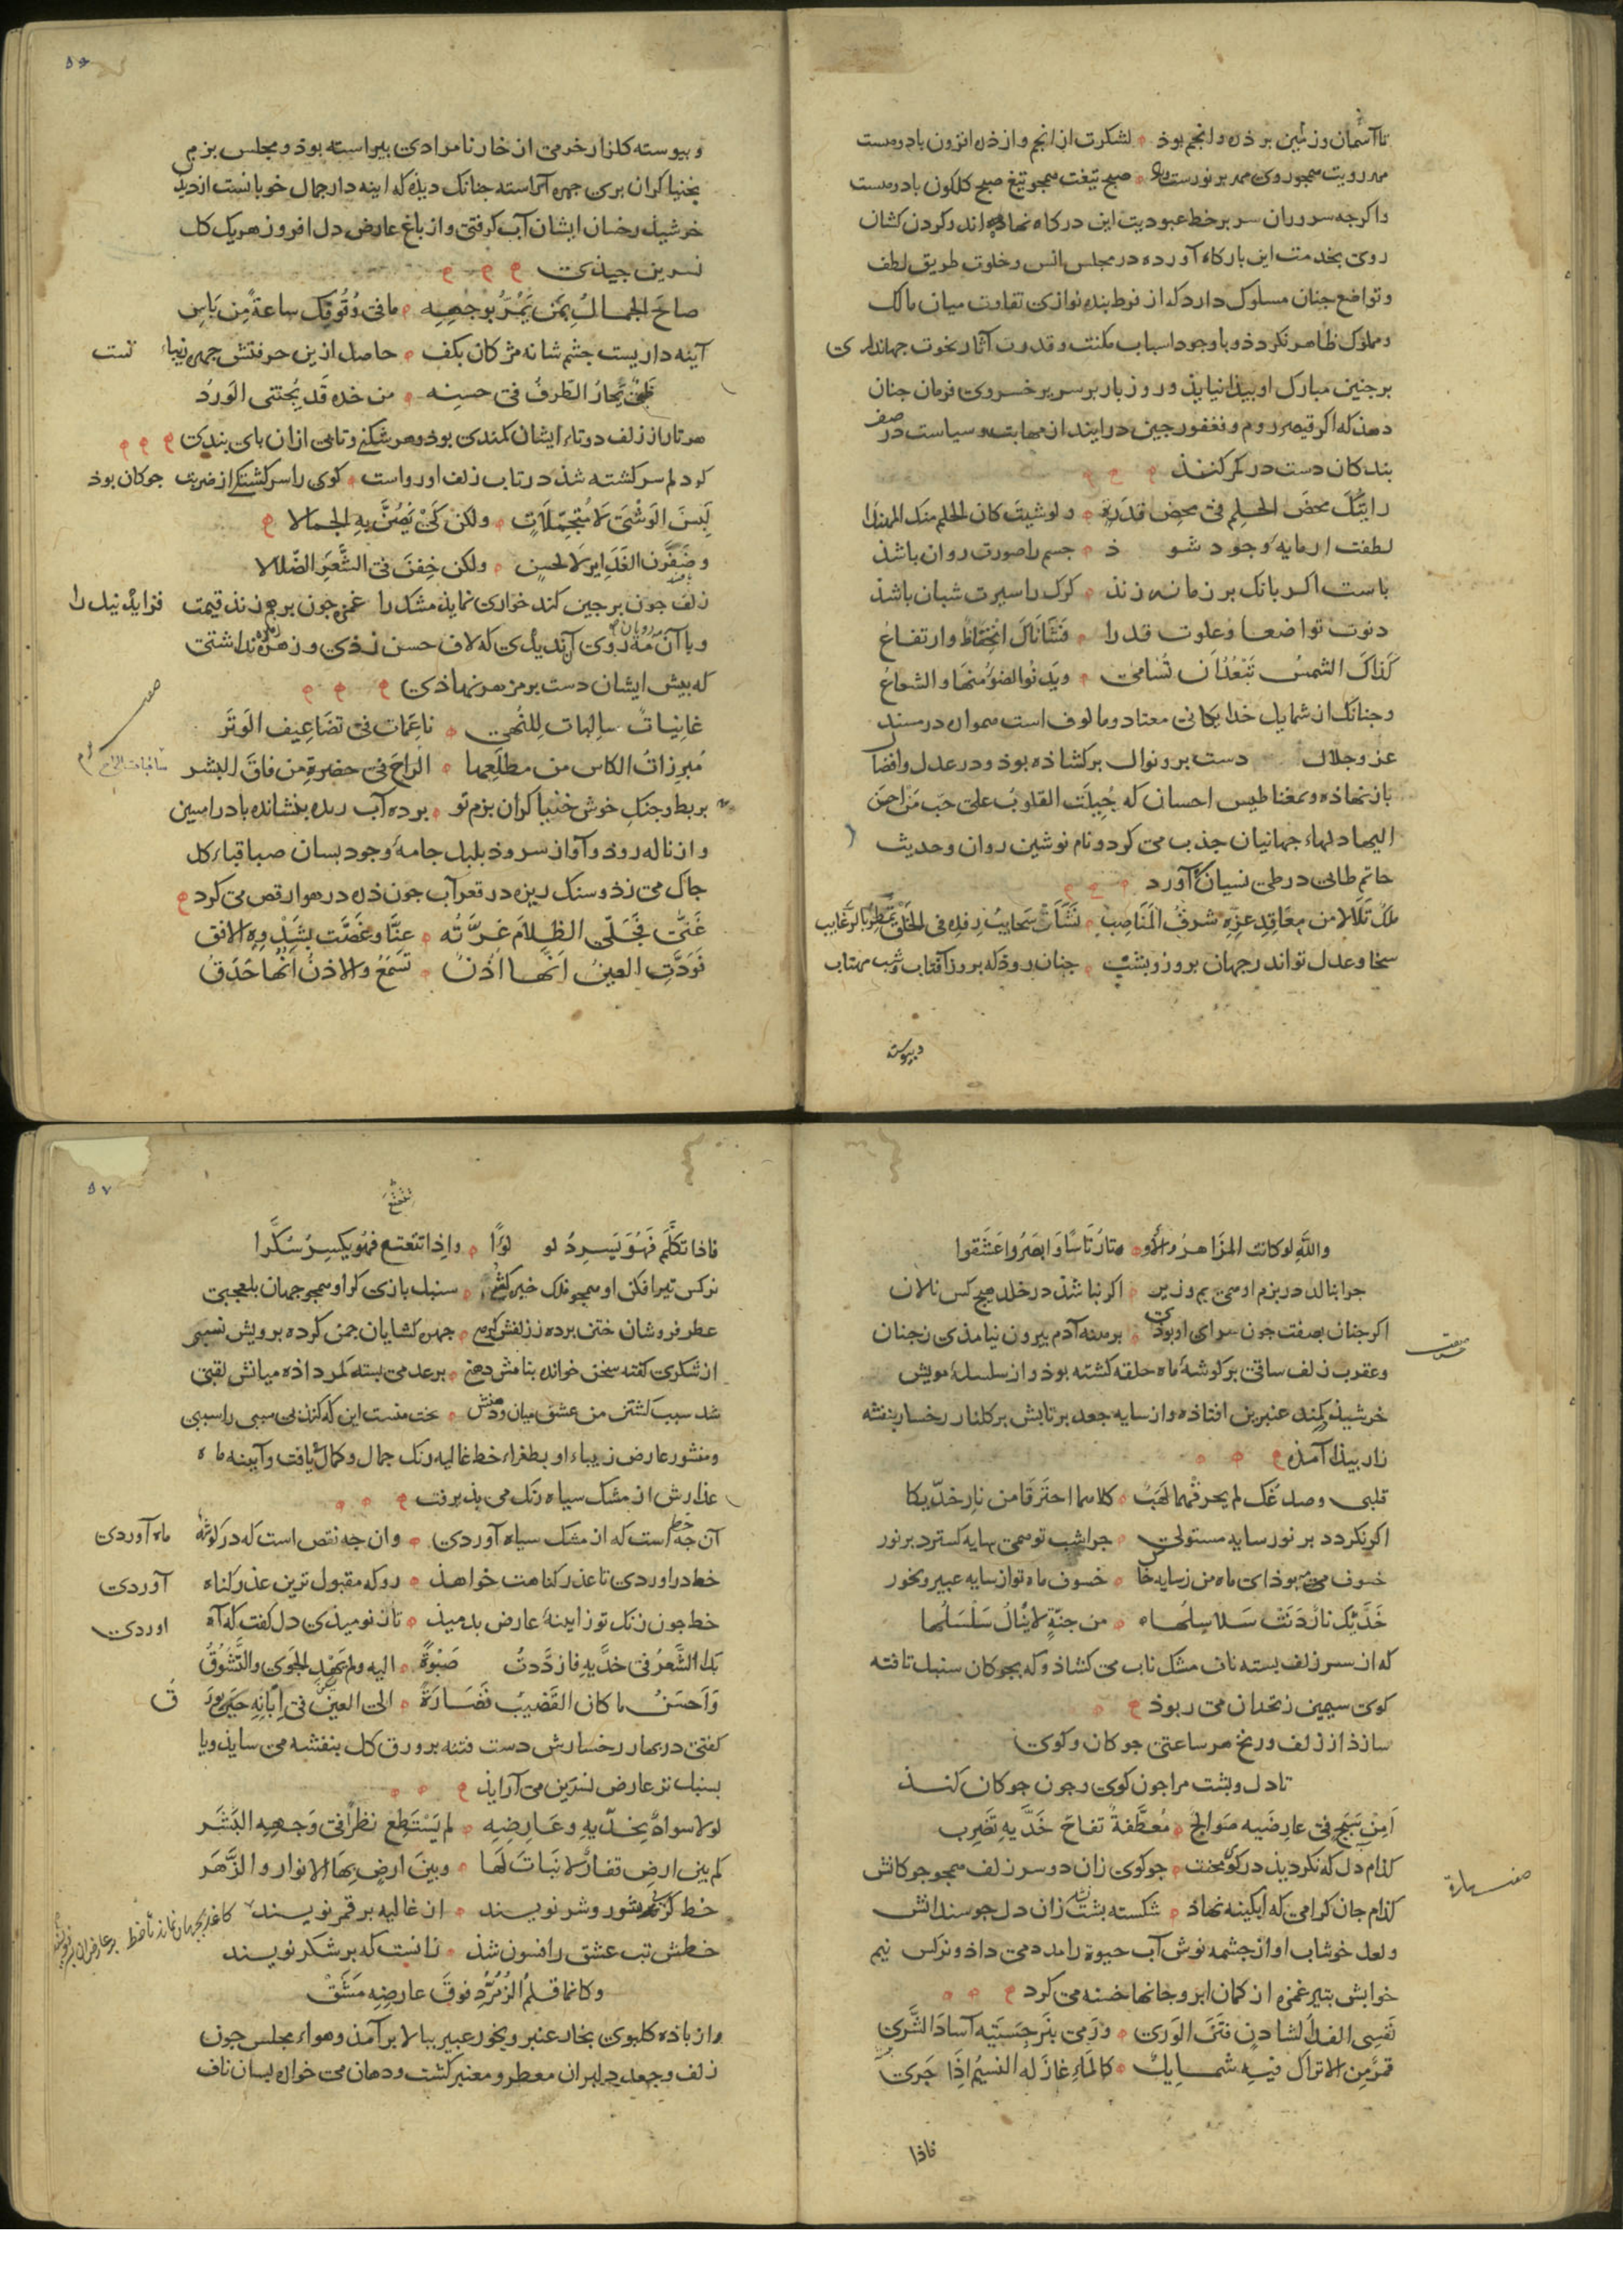 تا آسمان و زمین بر ذره و انجم بود لشکرت از انجم و از ذره افزون باد و هست
صبح تیغت همچو تیغ صبح کلکون باد و هست
و اکرجه سروران سر بر خط عبودیت این درکاه نهاده اند و کردن کشان
روی بخدمت این بارکاه آورده در مجلس انس و خلوت طریق لطف
و تواضع جنان مسلوک دارد که از فرط بنده نوازی تفاوت میان مالک
و مملوک ظاهر نکردد و با وجود اسباب مکنت و قدرت آثار نخوت جهانداری
بر جبین مبارک او بیذا نیایذ و روز بار بر سریر خسروی فرمان جنان
دهذ که اکر قیصر روم و فغفور جین درایند از مهابت و سیاست در صف
بندکان دست در کمر کنند
رایتک محض الحلم فی محض قدرة ولو شیت کان الحلم منک المهندا
لطفت ار مایه وجود شود جسم را صورت روان باشذ
باست اکر بانک بر زمانه زند کرک را سیرت شبان باشذ
دنوت تواضعا و علوت قدرا فشاناک انخفاظ وارتفاع
کذاک الشمس تبعد ان تسامی ویدنو الضوء منها والشعاع
و جنانک از شمایل خدایکانی معتاد و مالوف است همواره در مسند
عز و جلال دست بر و نوال برکشاذه بود و در عدل و افضال
باز نهاذه و بمغناطیس احسان که جبلت القلوب علی حب من احسن
الیها دلهاء جهانیان جذب می کرد و نام نوشین روان و حدیث
حاتم طائی در طی نسیان آورد
ملک تلالا من معاقد عزه شرف المناصب نشات سحایب رفده فی الخلق تمطر بالرغایب
سخا و عدل تو اندر جهان بروز و بشب جنان روذ که بروز آفتاب و شب مهتاب
و بیوسته
۵۶
و بیوسته کلزار خرمی از خار نامرادی بیراسته بوذ و مجلس بزم
بخنیاکران بری جهره آراسته جنانک دیذه که اینه دار جمال خوبانست از دید
خرشید رخسان ایشان آب کرفتی و از باغ عارض دل افروز هریک کل
نسرین جیذی
صاح الجمال بمن یمر بوجهه ما فی وقوفک ساعة من باس
آینه داریست جشم شانه مژکان بکف حاصل ازین حرفتش جهره زیباء تست
ظبی یحار الطرف فی حسنه من خده قد یجتنی الورد
هر تار از زلف دوتاء ایشان کمندی بود و هر شکنی و تابی ازان بای بندی
کر دلم سرکشته شذ در تاب زلف او رواست کوی را سرکشتکی از ضربت جوکان بود
لبسن الوشی لا متجملات ولکن کی یصن به الجمالا
وضفرن الغدایر لا لحسن ولکن خفن فی الشعر الضلالا
زلف جون بر جین کند خواری نماید مشک را غمزه جون بر هم زند قیمت فزاید نیل را
و با آن مه رویان زوی آن ندیدی که لاف حسن زذی و زهره زهره نداشتی
که بیش ایشان دست بر مزهر نهاذی
غانیات سالبات للنهی ناغمات فی تضاعیف الوتر
مبرزات الکاس من مطلعها الراح فی حضرة من فاق البشر
بربط و جنک خوش خنیاکران بزم تو برده آب رود بنشانده باد رامین
و از ناله روذ و آواز سروذ بلبل جامه وجود بسان صبا قباء کل
جاک می زذ و سنک ریزه در قعر آب جون ذره در هوا رقص می کرد
غنت فجلی الظلام غرته عنا وغضت بشدوه الافق
فودت العین انها اذن تسمع والاذن انها حدق
والله لو کانت المزاهر
جرا نالد در بزم او همی بم و زیر اکر نباشذ در خلد هیچ کس نالان
اکر جنان بصفت جون سرای او بوذی برهنه آدم بیرون نیامذی ز جنان
و عقرب زلف ساقی بر کوشه ماه حلقه کشته بوذ و از سلسله مویش
خرشیذ بکمند عنبرین افتاذه و از سایه جعد بر تابش بر کلنار رخسار بنفشه
زار بیذا آمذه
قلبی وصدغک لم یحرقهما لهب کلاهما احترقا من نار خدیکا
اکر نکردد بر نور سایه مستولی جرا شب تو همی سایه کسترد بر نور
خسوف می نبوذ ای ماه من ز سایه خاک خسوف ماه تو از سایه عبیر و بخور
خدیک نار دنت سلاسلها من جنة لا ینال سلسلها
که از سر زلف بسته ناف مشک ناب می کشاذ و که بجوکان سنبل تافته
کوی سیمین زنخدان می ربوذ
سازذ از زلف و رخ هر ساعتی جوکان و کوی
تا دل و بشت مرا جون کوی و جون جوکان کنذ
امن سبج فی عارضیه صوالج معطفة تفاح خدیه تضرب
کذام دل که نکردیذ در کوی محنت جو کوی زان دو سر زلف همجو جوکانش
کذام جان کرامی که ابکینه نهاذ شکسته بشت زان دل جو سندانش
و لعل خوشاب او از جشمه نوش آب حیوة را مدد می داذ و نرکس نیم
خوابش بتیر غمزه از کمان ابرو جانها خسته می کرد
نفسی الفداء لشادن فتن الوری ورمی بنرجستیه آساد الثری
قمر من الاتراک فیه شمایل کالماء غازله النسیم اذا جری
فاذا
۵۷
فاذا تکلم فهو یسرد لولوا واذا تتعتع فهو یکسر سکرا
نرکس تیرافکن او همجو فلک خیره کشی سنبل بازی کر او همجو جهان بلعجبی
عطر فروشان ختن برده ز زلفش کرهی جهره کشایان جمن کرده برویش نسبی
از شکری کفته سخن خوانده بنامش دهنی بر عدمی بسته کمر داذه میانش لقبی
شد سبب کشتن من عشق میان و دهنش سخت منست این که کنذ بی سببی را سببی
و منشور عارض زیباء او بطغراء خط غالیه رنک جمال و کمال یافت و آیینه ماه
عذارش از مشک سیاه رنک می بذیرفت
آن جه خط است که از مشک سیاه آوردی وان جه نقص است که در کوشه ماه آوردی
خط در اوردی تا عذر کناهت خواهذ رو که مقبول ترین عذر کناه آوردی
خط جون زنک تو ز ایینه عارض بدمیذ تا ز نومیذی دل کفت که آه اوردی
بدا الشعر فی خدیه فازددت صبوة الیه ولم یهد الجوی والتشوق
واحسن ما کان القضیب نضارة الی العین فی ابانه حین یورق
کفتی در بهار رخسارش دست فتنه بر ورق کل بنفشه می سایذ و یا
بسنبل تر عارض نسرین می آرایذ
لولا سواد بخدیه وعارضه لم یستطع نظرا فی وجهه البشر
کم بین ارض تفار لا نبات لها وبین ارض بها الانوار والزهر
خط کز شور و شر نویسند از غالیه بر قمر نویسند
خطش تب عشق را فسون شذ زانست که بر شکر نویسند
وکانما قلم الزمرد فوق عارضه مشق
و از باذه کلبوی بخار عنبر و بخور عبیر ببالا بر آمذ و هواء مجلس جون
زلف و جعد دلبران معطر و معنبر کشت و دهان می خواره بسان ناف